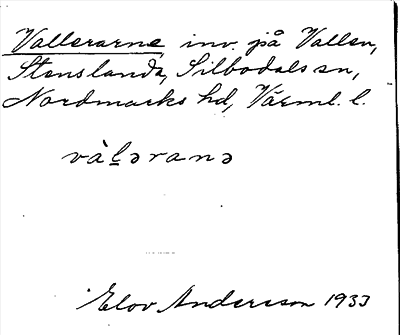 Vallerarne inv. på Vallen,
Stenslanda, Silbodals sn,
Nordmarks hd, Värml. l.
vàḻəranə
Elov Andersson 1933